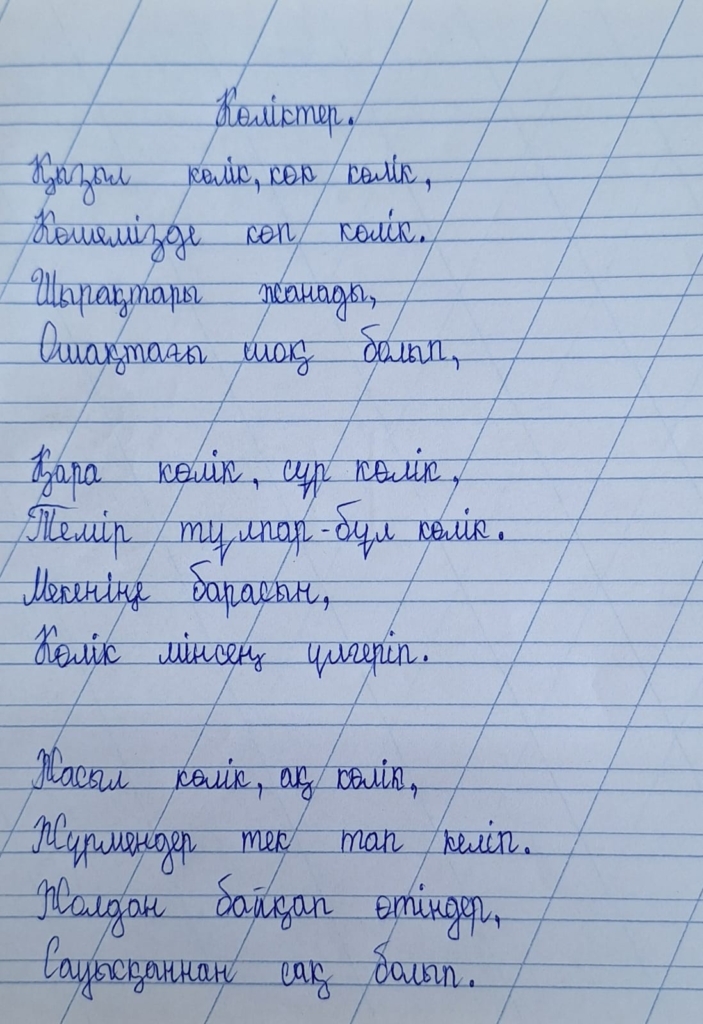 Көліктер.
Қызыл көлік, көк көлік,
Көшемізде көп көлік.
Шырақтары жанады,
Ошақтағы шоқ болып,
Қара көлік, сұр көлік,
Темір тұлпар-бұл көлік.
Мекеніңе барасың,
Көлік мінсең үлгеріп.
Жасыл көлік, ақ көлік,
Жүрмеңдер тек тап келіп.
Жолдан байқап өтіңдер,
Сауысқаннан сақ болып.